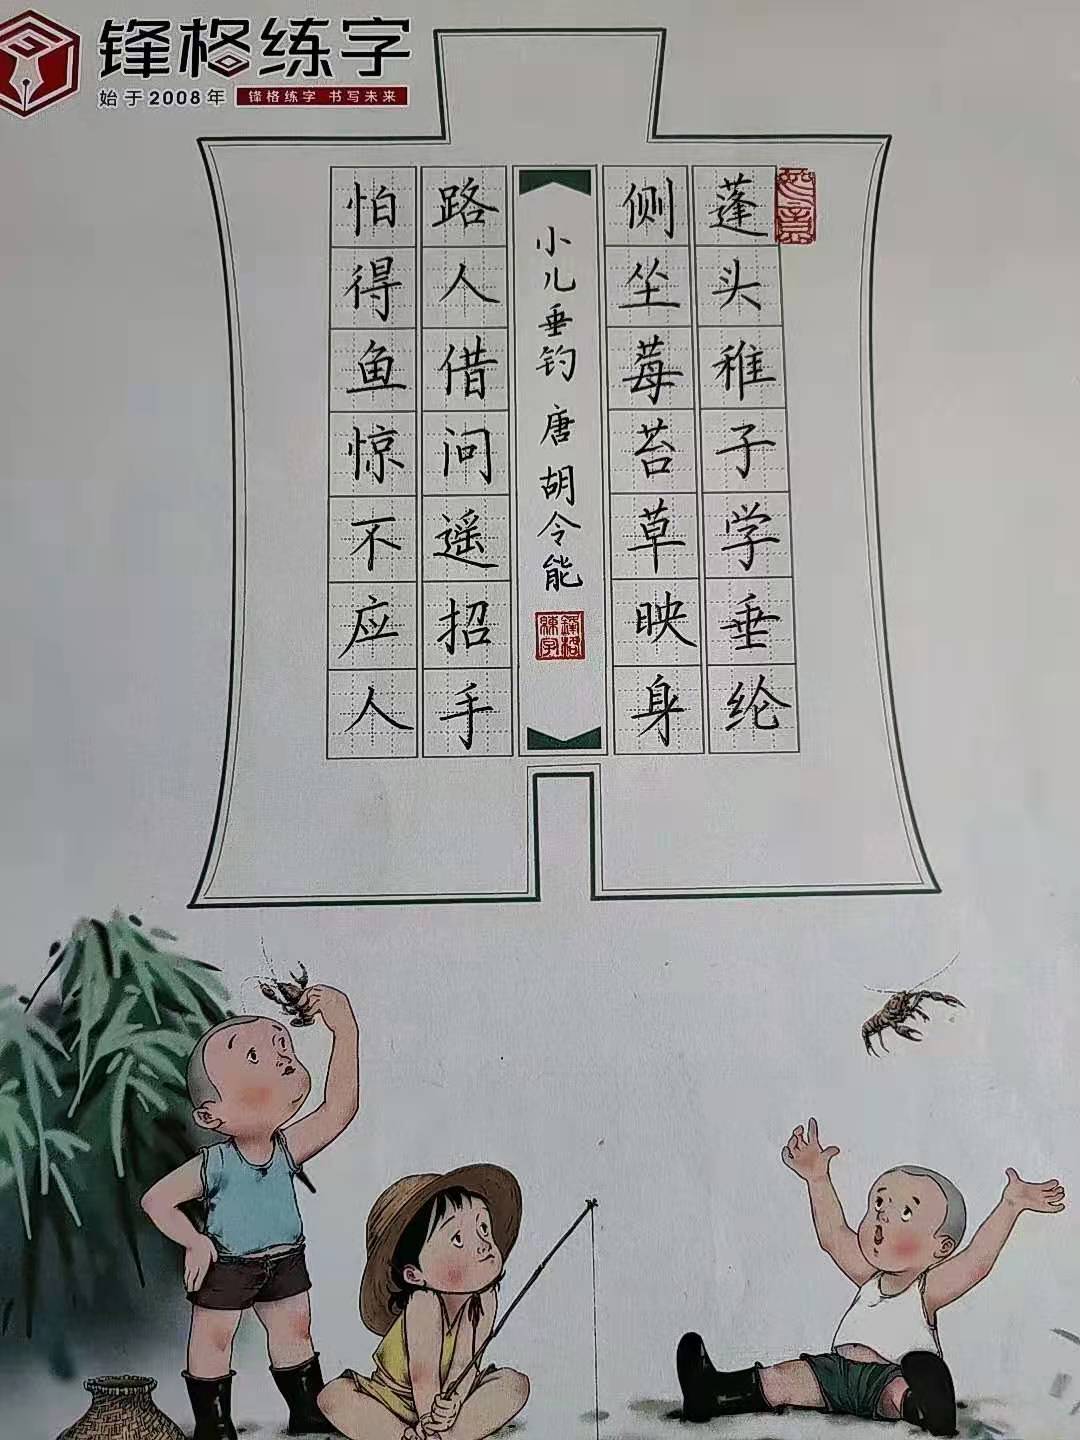 锋格练字
始于2008年 锋格练字 书写未来
蓬头稚子学垂纶
侧坐莓苔草映身
小儿垂钓 唐 胡令能
鋒格練字
路人借问遥招手
怕得鱼惊不应人